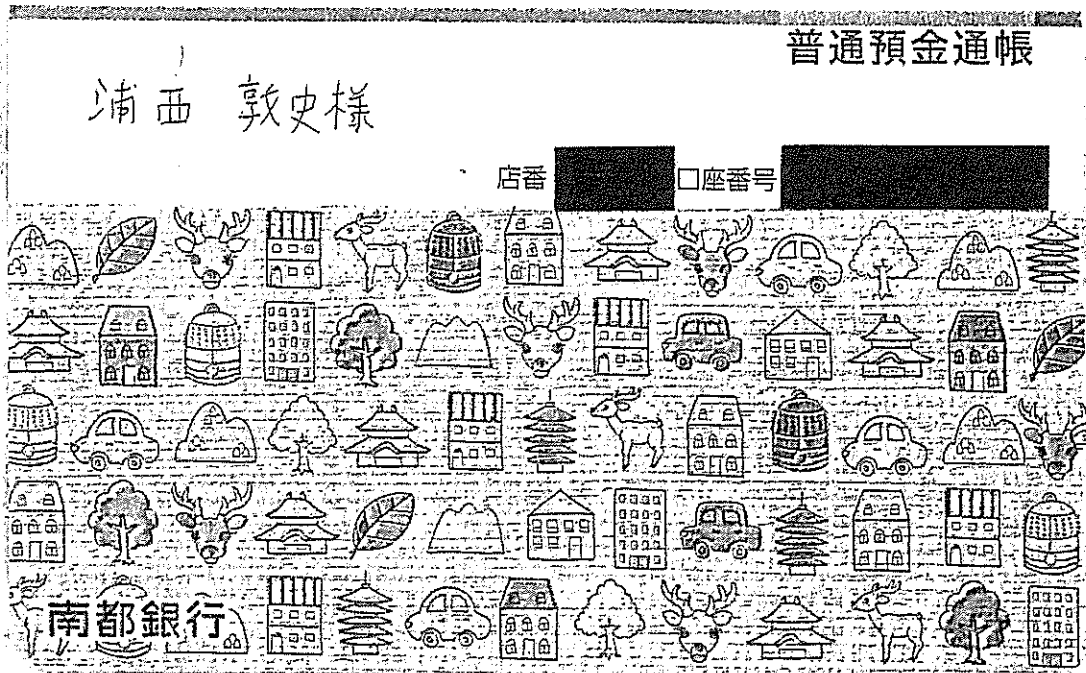 普通預金通帳
浦西 敦史様
店番
口座番号
南都銀行